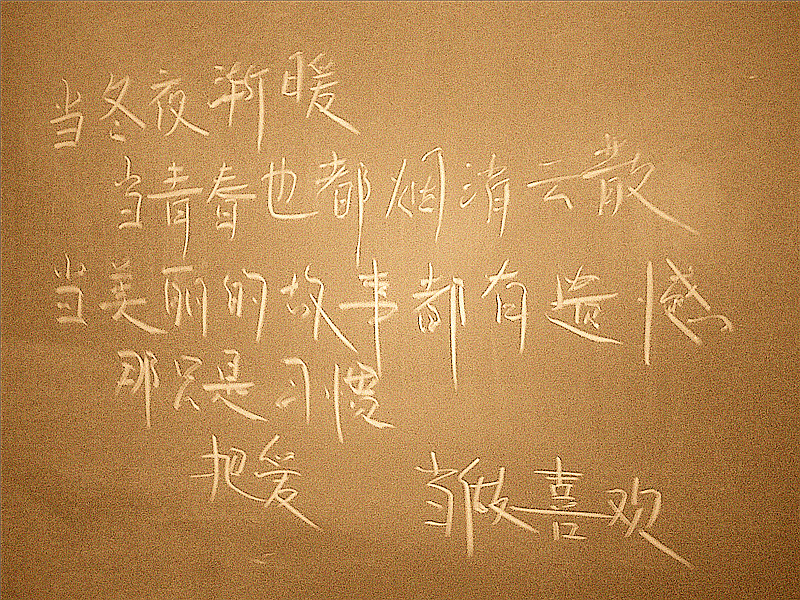 当冬夜渐暖
当青春也都烟消云散
当美丽的故事都有遗憾
那只是习惯
把爱 当做喜欢